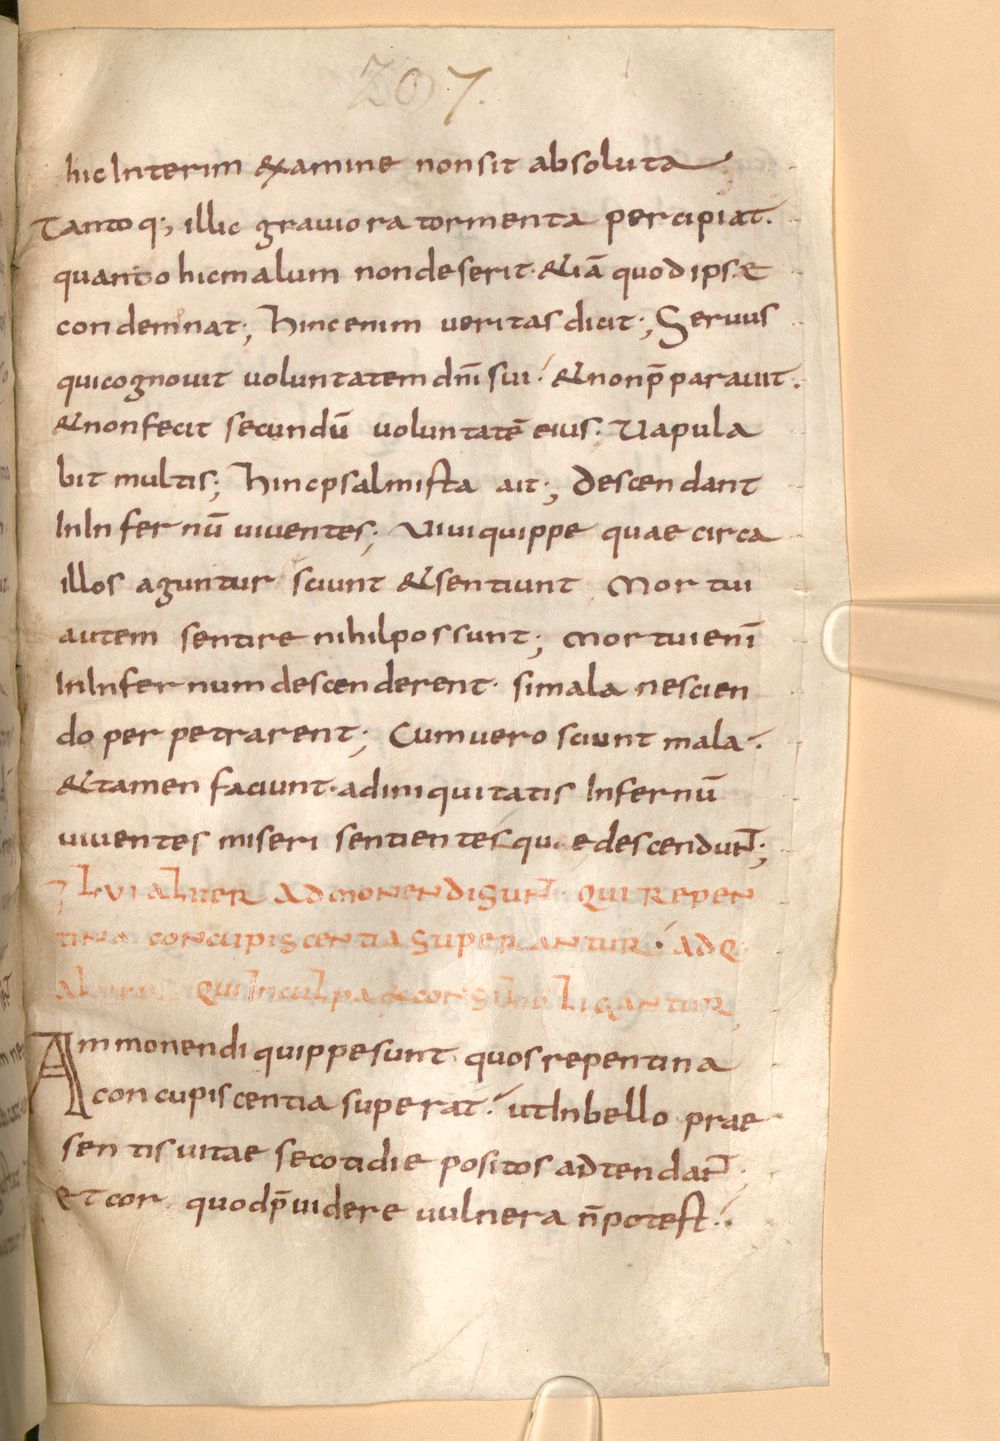 207.
hic Interim examine non sit absoluta
Tanto q; illic grauiora tormenta percipiat.
quanto hic malum non deserit. &iā quod ipse
condemnat; hinc enim ueritas dicit; Seruus
qui cognouit uoluntatem dn̄i sui. & non p̄parauit.
& non fecit secundū uoluntatē eius. Uapula
bit multis; hinc psalmista ait; descendant
In Infernū uiuentes; Uiui quippe quae circa
illos aguntur sciunt & sentiunt Mortui
autem sentire nihil possunt; Mortui enī
In Infernum descenderent. si mala nescien
do perpetrarent; Cum uero sciunt mala.
& tamen faciunt. ad iniquitatis Infernū
uiuentes miseri sentientesque descendunt;
LVI aliter admonendi sunt. qui repen
tina concupiscentia superantur. adq
aliter qui In culpa & consilio ligantur;
Ammonendi quippe sunt. quos repentina
concupiscentia superat. ut In bello prae
sentis uitae se cotidie positos adtendant;
et cor quod p̄uidere uulnera n̄ potest.